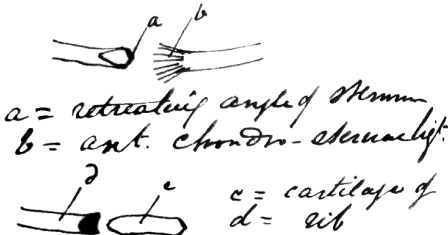 a b
a = retreating angle of sternum
b = ant. chondro-sternal ligt.
d c c = cartilage of
d = rib